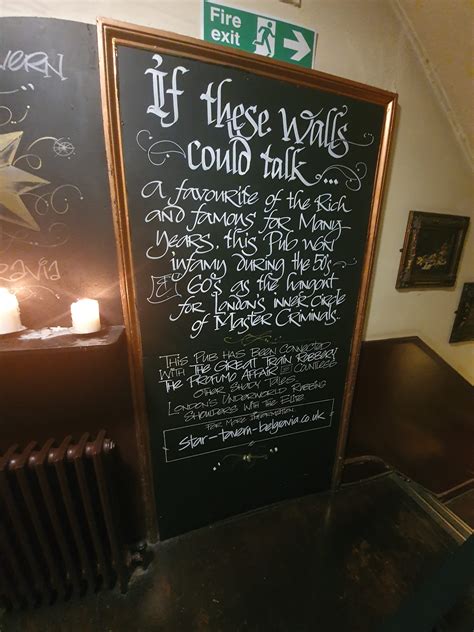 Fire
exit
VERN
ravia
If these Walls
could talk...
a favourite of the Rich
and famous for Many
Years, this Pub won
infamy during the 50's
& 60's as the hangout
for London's inner circle
of Master Criminals.
This Pub has been connected
with The Great Train Robbery,
The Profumo Affair & countless
other shady tales
London's underworld rubbing
shoulders with the Elite
For more information
star-tavern-belgravia.co.uk